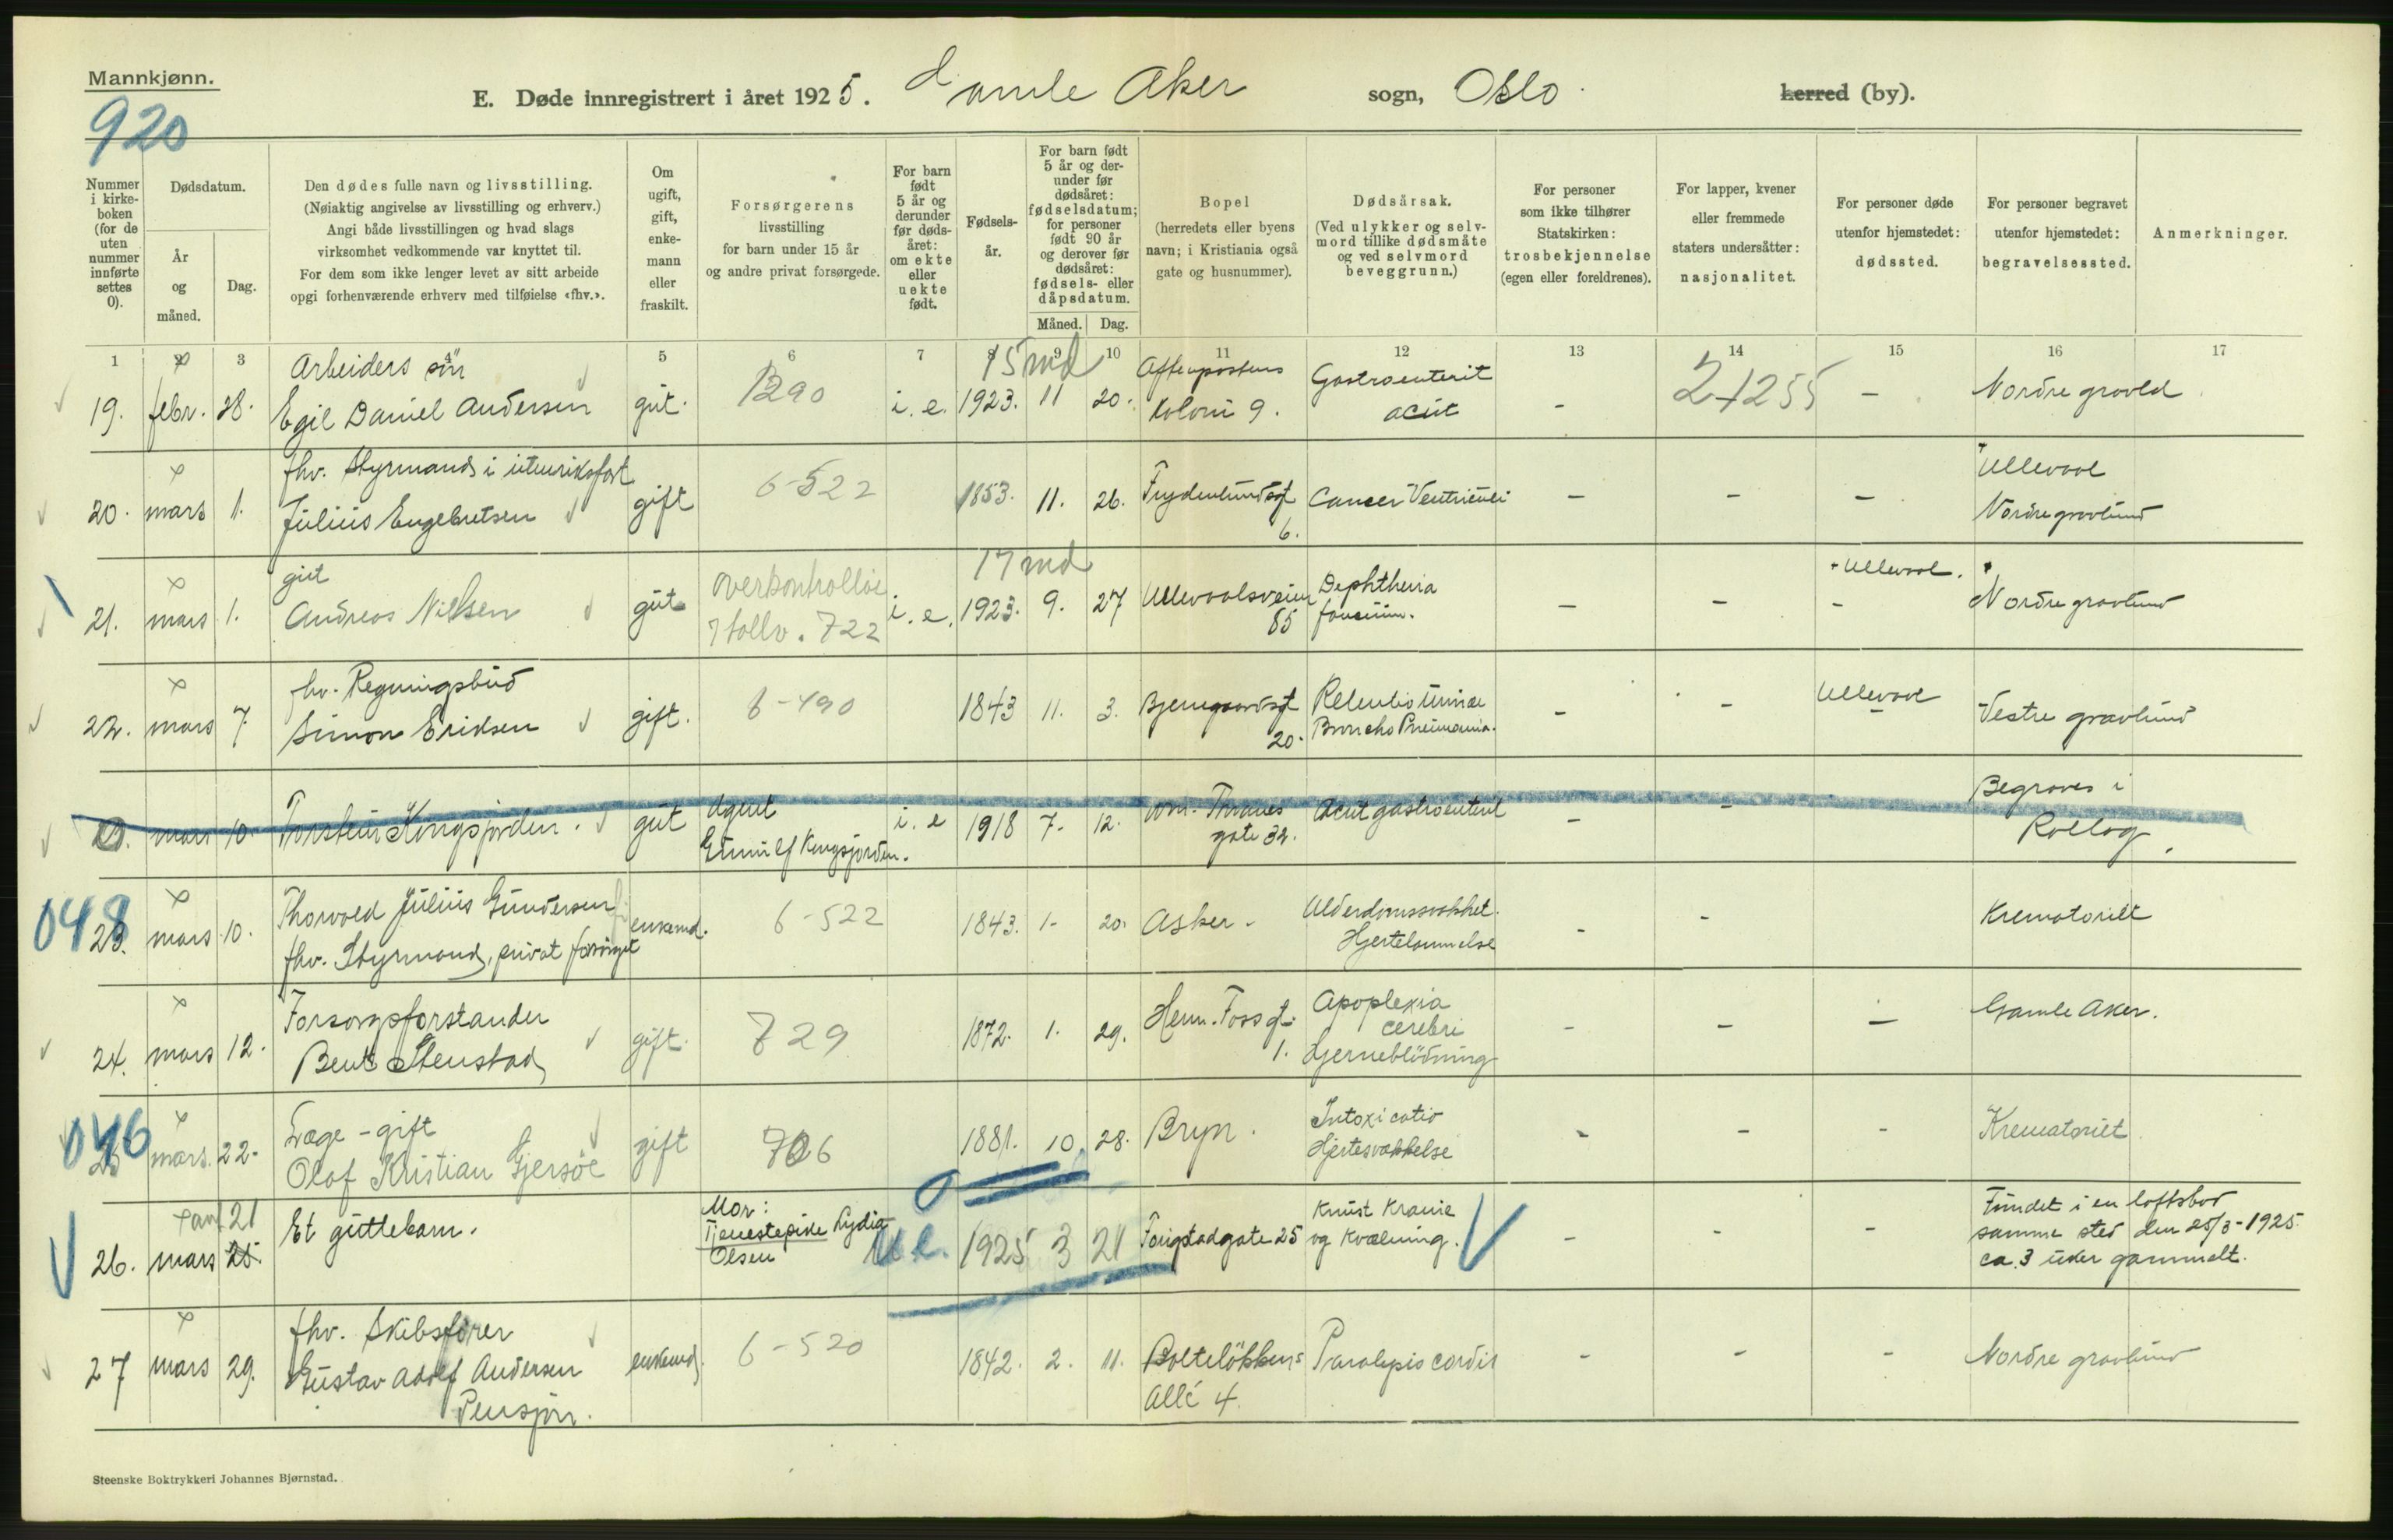 Mannkjønn.
920
E. Døde innregistrert i året 1925. Gamle Aker sogn, Oslo herred (by).
Nummer i kirke-boken (for de uten nummer innførte settes 0).
Dødsdatum.
År og måned.
Dag.
Den dødes fulle navn og livsstilling.
(Nøiaktig angivelse av livsstilling og erhverv.)
Angi både livsstillingen og hvad slags
virksomhet vedkommende var knyttet til.
For dem som ikke lenger levet av sitt arbeide
opgi forhenværende erhverv med tilføielse «fhv.».
Om ugift, gift, enke-mann eller fraskilt.
Forsørgerens
livsstilling
for barn under 15 år
og andre privat forsørgede.
For barn født 5 år og derunder før døds-året: om ekte eller uekte født.
Fødsels-år.
For barn født 5 år og der-under før dødsåret: fødselsdatum; for personer født 90 år og derover før dødsåret: fødsels- eller dåpsdatum.
Måned. Dag.
Bopel
(herredets eller byens
navn; i Kristiania også
gate og husnummer).
Dødsårsak.
(Ved ulykker og selv-
mord tillike dødsmåte
og ved selvmord
beveggrunn.)
For personer
som ikke tilhører
Statskirken:
trosbekjennelse
(egen eller foreldrenes).
For lapper, kvener
eller fremmede
staters undersåtter:
nasjonalitet.
For personer døde
utenfor hjemstedet:
dødssted.
For personer begravet
utenfor hjemstedet:
begravelsessted.
Anmerkninger.
1 2 3 4 5 6 7 8 9 10 11 12 13 14 15 16 17
Arbeiders søn 15 md Aftenpostens Gastroenterit
19. febr. 28. Egil Daniel Andersen gut. 1290 i. e. 1923. 11 20. Koloni 9. acut - 2+255 - Nordre gravld
fhv. Styrmand i utenriksfart Ullevaal
20. mars 1. Julius Engebretsen gift 6-522 1853. 11. 26. Frydenlundsgt 6. Cancer Ventriculi - - - Nordre gravlund
gut Overkontrollør 17 md Ullevaal.
21. mars 1. Andreas Nilsen gut Tollv. 722 i. e. 1923. 9. 27 Ullevaalsveien 85 Dephtheria faucium. - - - Nordre gravlund
fhv. Regningsbud Retentio Urinae Ullevaal
22. mars 7. Simon Eriksen gift. 6-490 1843 11. 3. Bjerregaardsgt 20. Broncho Pneumonia. - - - Vestre gravlund
Agent Begraves i
mars 10. Torstein Kongsjorden. gut Gunulf Kongsjorden. i. e 1918 7. 12. Mar. Thranes gate 32. Acut gastroenterit - - Rollag.
048 Thorvald Julius Gundersen Alderdomssvakhet.
23. mars 10. fhv. Styrmand, privat forsørget enkemd. 6-522 1843. 1. 20. Asker. Hjertelammelse - - Krematoriet
Forsorgsforstander Apoplexia cerebri
24. mars 12. Bent Stenstad gift. 729 1872. 1. 29. Herm. Foss gt. 1. Hjerneblödning - - - Gamle Aker.
046 Læge - gift Intoxicatio
25 mars. 22. Olaf Kristian Gjersöe gift 706 1881. 10. 28. Bryn. Hjertesvækkelse - - - Krematoriet
21 Mor: Knust Kranie Fundet i en loftsbod
26. mars 25. Et guttebarn. Tjenestepike Lydia Olsen u. e. 1925 3 21 Torigstadgate 25 og Kvælning. - - - samme sted den 25/3-1925.
ca. 3 uker gammelt.
fhv. Skibsfører
27 mars 29. Gustav Adolf Andersen enkemd. 6-520 1842. 2. 11. Bolteløkkens Allé 4. Paralysis cordis - - - Nordre gravlund
Pensjon.
Steenske Boktrykkeri Johannes Bjørnstad.